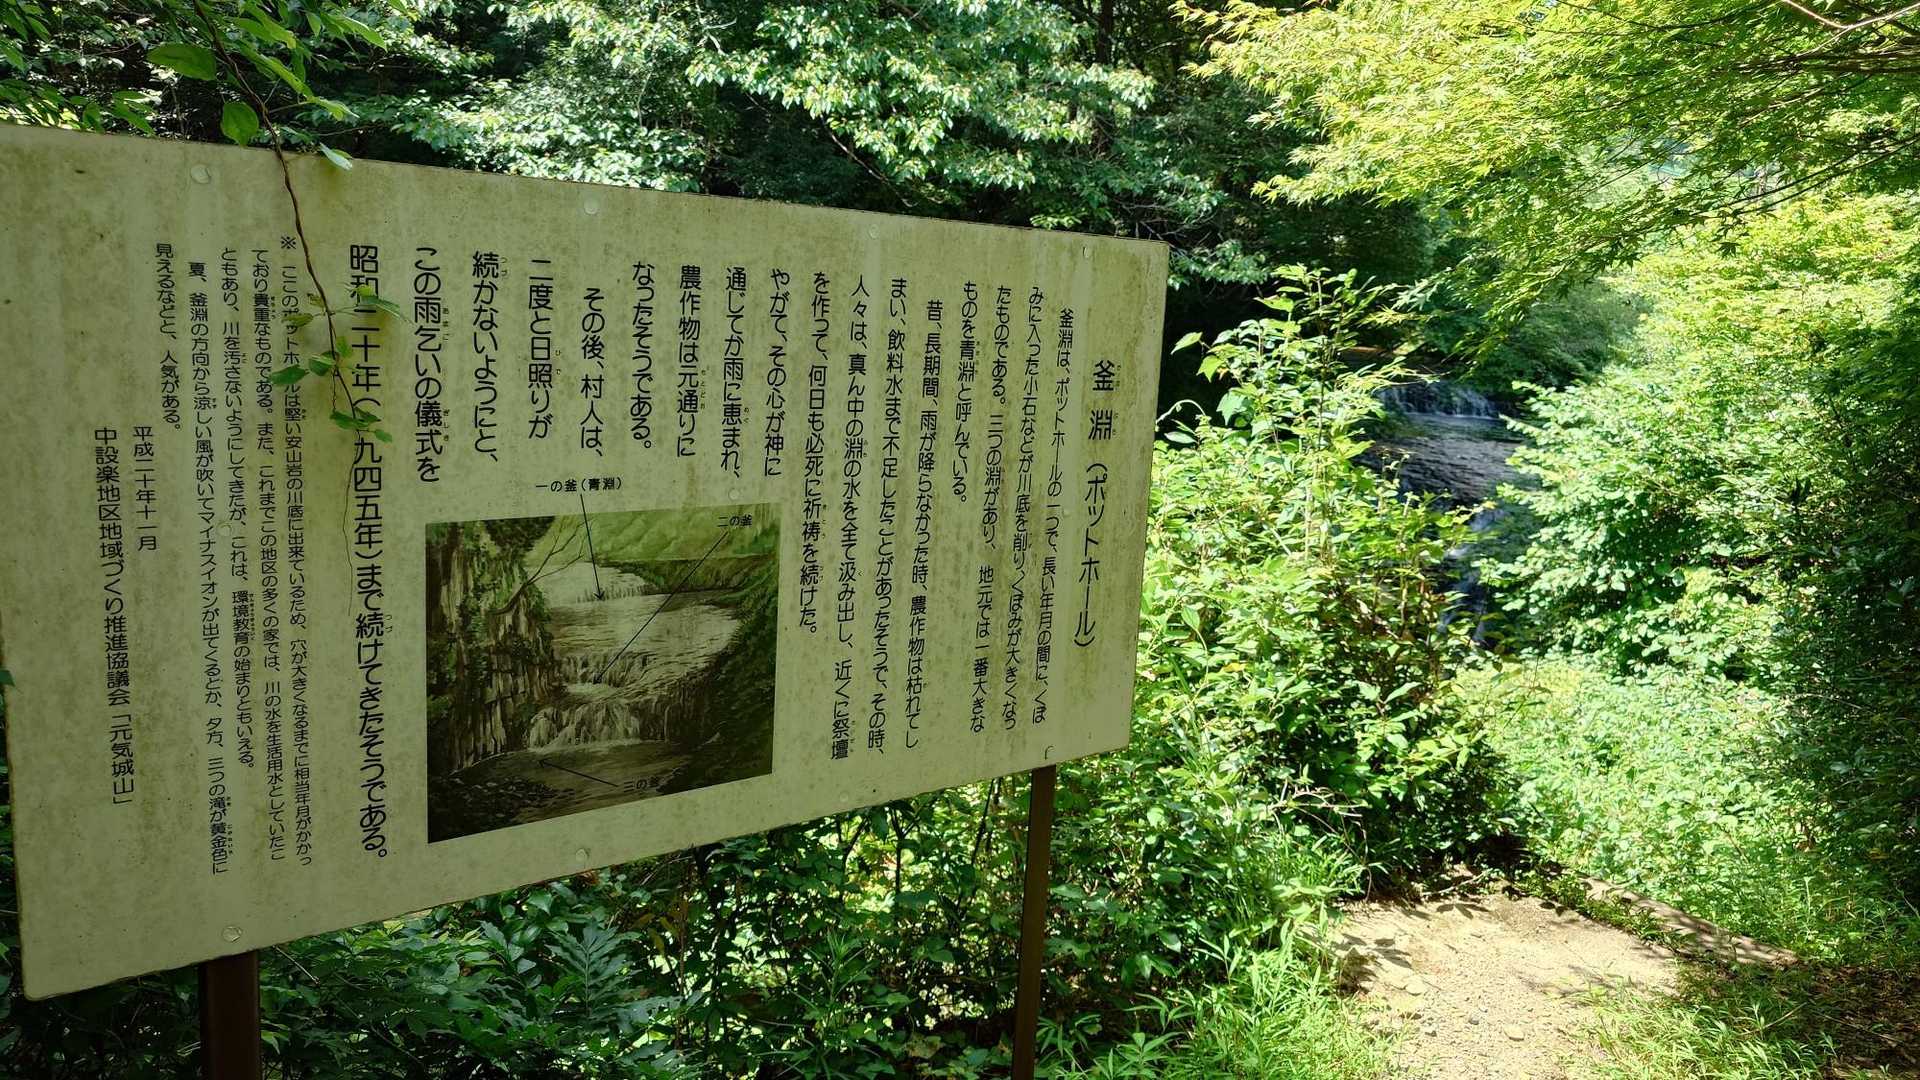 釜淵（ポットホール）
釜淵は、ポットホールの一つで、長い年月の間に、くぼ
みに入った小石などが川底を削り、くぼみが大きくなっ
たものである。三つの淵があり、地元では一番大きな
ものを青淵と呼んでいる。
昔、長期間、雨が降らなかった時、農作物は枯れてし
まい、飲料水まで不足したことがあったそうで、その時、
人々は、真ん中の淵の水を全て汲み出し、近くに祭壇
を作って、何日も必死に祈祷を続けた。
やがて、その心が神に
通じてか雨に恵まれ、
農作物は元通りに
なったそうである。
その後、村人は、
二度と日照りが
続かないようにと、
この雨乞いの儀式を
昭和二十年（一九四五年）まで続けてきたそうである。
一の釜（青淵）
二の釜
三の釜
※ ここのポットホールは堅い安山岩の川底に出来ているため、穴が大きくなるまでに相当年月がかかっ
ており貴重なものである。また、これまでこの地区の多くの家では、川の水を生活用水としていたこ
ともあり、川を汚さないようにしてきたが、これは、環境教育の始まりともいえる。
夏、釜淵の方向から涼しい風が吹いてマイナスイオンが出てくるとか、夕方、三つの滝が黄金色に
見えるなどと、人気がある。
平成二十年十一月
中設楽地区地域づくり推進協議会「元気城山」